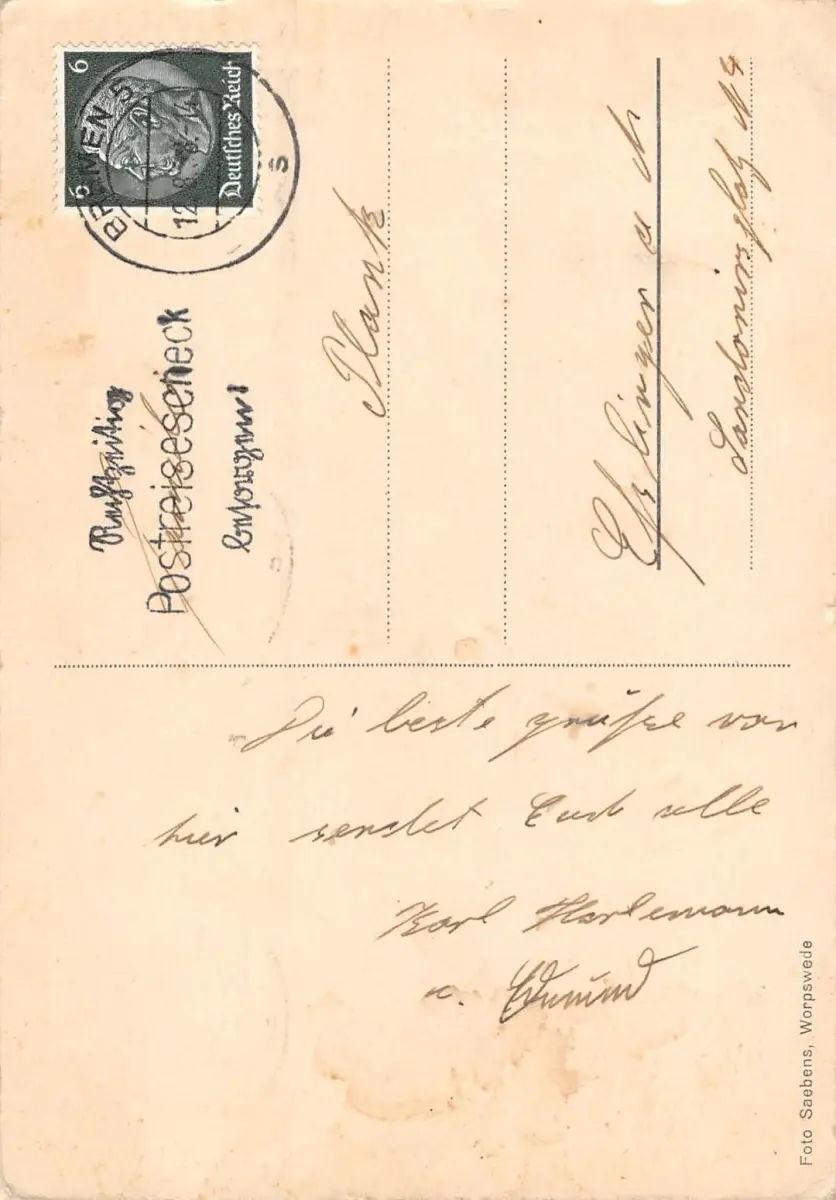 Die beste grüße von
hier sendet Euch alle
Karl Harlemann
u. Edmund
Foto Saebens, Worpswede
6 6
Deutsches Reich
BREMEN 5
12.8. -14
5
Rechtzeitig
Postreisescheck
besorgen!
Plank
Eßlingen a N